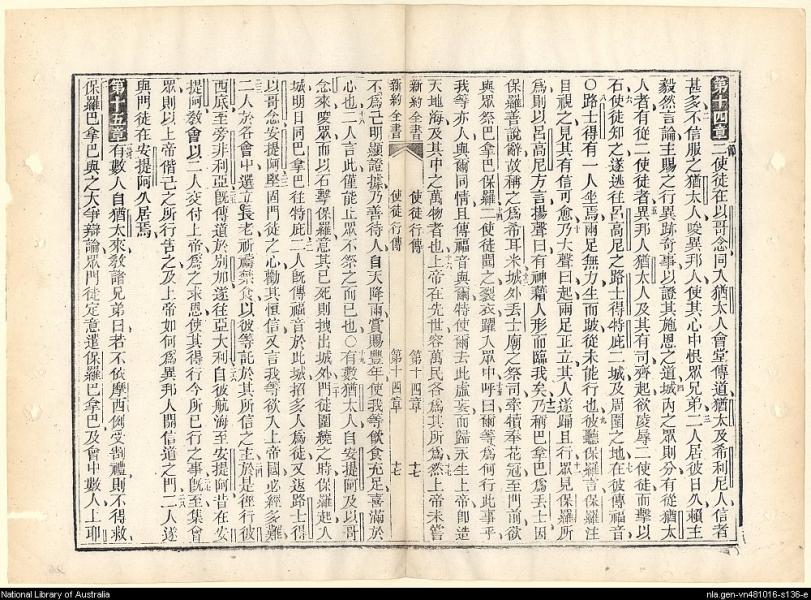 第十四章 二使徒在以哥念同入猶太人會堂傳道猶太及希利尼人信者
甚多不信服之猶太人唆異邦人使其心中恨眾兄弟二人居彼日久賴主
毅然言論主賜之行異跡奇事以證其施恩之道城內之眾則分有從猶太
人者有從二使徒者異邦人猶太人及其有司齊起欲凌辱二使徒而擊以
石使徒知之遂逃往呂高尼之路士得特庇二城及周圍之地在彼傳福音
○路士得有一人坐焉兩足無力生而跛從未能行也彼聽保羅言保羅注
目視之見其有信可愈乃大聲曰起兩足正立其人遂踊且行眾見保羅所
為則以呂高尼方言揚聲曰有神藉人形而臨我矣乃稱巴拿巴為丟士因
保羅善說辭故稱之為希耳米城外丟士廟之祭司牽犢奉花冠至門前欲
與眾祭巴拿巴保羅二使徒聞之裂衣躍入眾中呼曰爾等為何行此事乎
我等亦人與爾同情且傳福音與爾特使爾去此虛妄而歸永生上帝即造
天地海及其中之萬物者也上帝在先世容萬民各為其所為然上帝未嘗
新約全書 使徒行傳 第十四章 十七
新約全書 使徒行傳 第十四章 十七
不為己明顯證據乃善待人自天降雨賞賜豐年使我等飲食充足喜滿於
心也二人言此僅能止眾不祭之而已也○有數猶太人自安提阿及以哥
念來慶眾而以石擊保羅意其已死則拽出城外門徒圍繞之時保羅起入
城明日同巴拿巴往特庇二人既傳福音於此城招多人為徒又返路士得
以哥念安提阿堅固門徒之心勸其恒信又言我等欲入上帝國必經多難
二人於各會中選立長老祈禱禁食以彼等託於其所信之主於是徑行彼
西底至旁非利亞既傳道於別加遂往亞大利自彼航海至安提阿昔在安
提阿教會以二人交付上帝為之求恩使其得行今所已行之事既至集會
眾則以上帝偕己之所行告之及上帝如何為異邦人開信道之門二人遂
與門徒在安提阿久居焉
第十五章 有數人自猶太來教諸兄弟曰若不依摩西例受割禮則不得救
保羅巴拿巴與之大爭辯論眾門徒定意遣保羅巴拿巴及會中數人上耶
National Library of Australia
nla.gen-vn481016-s136-e